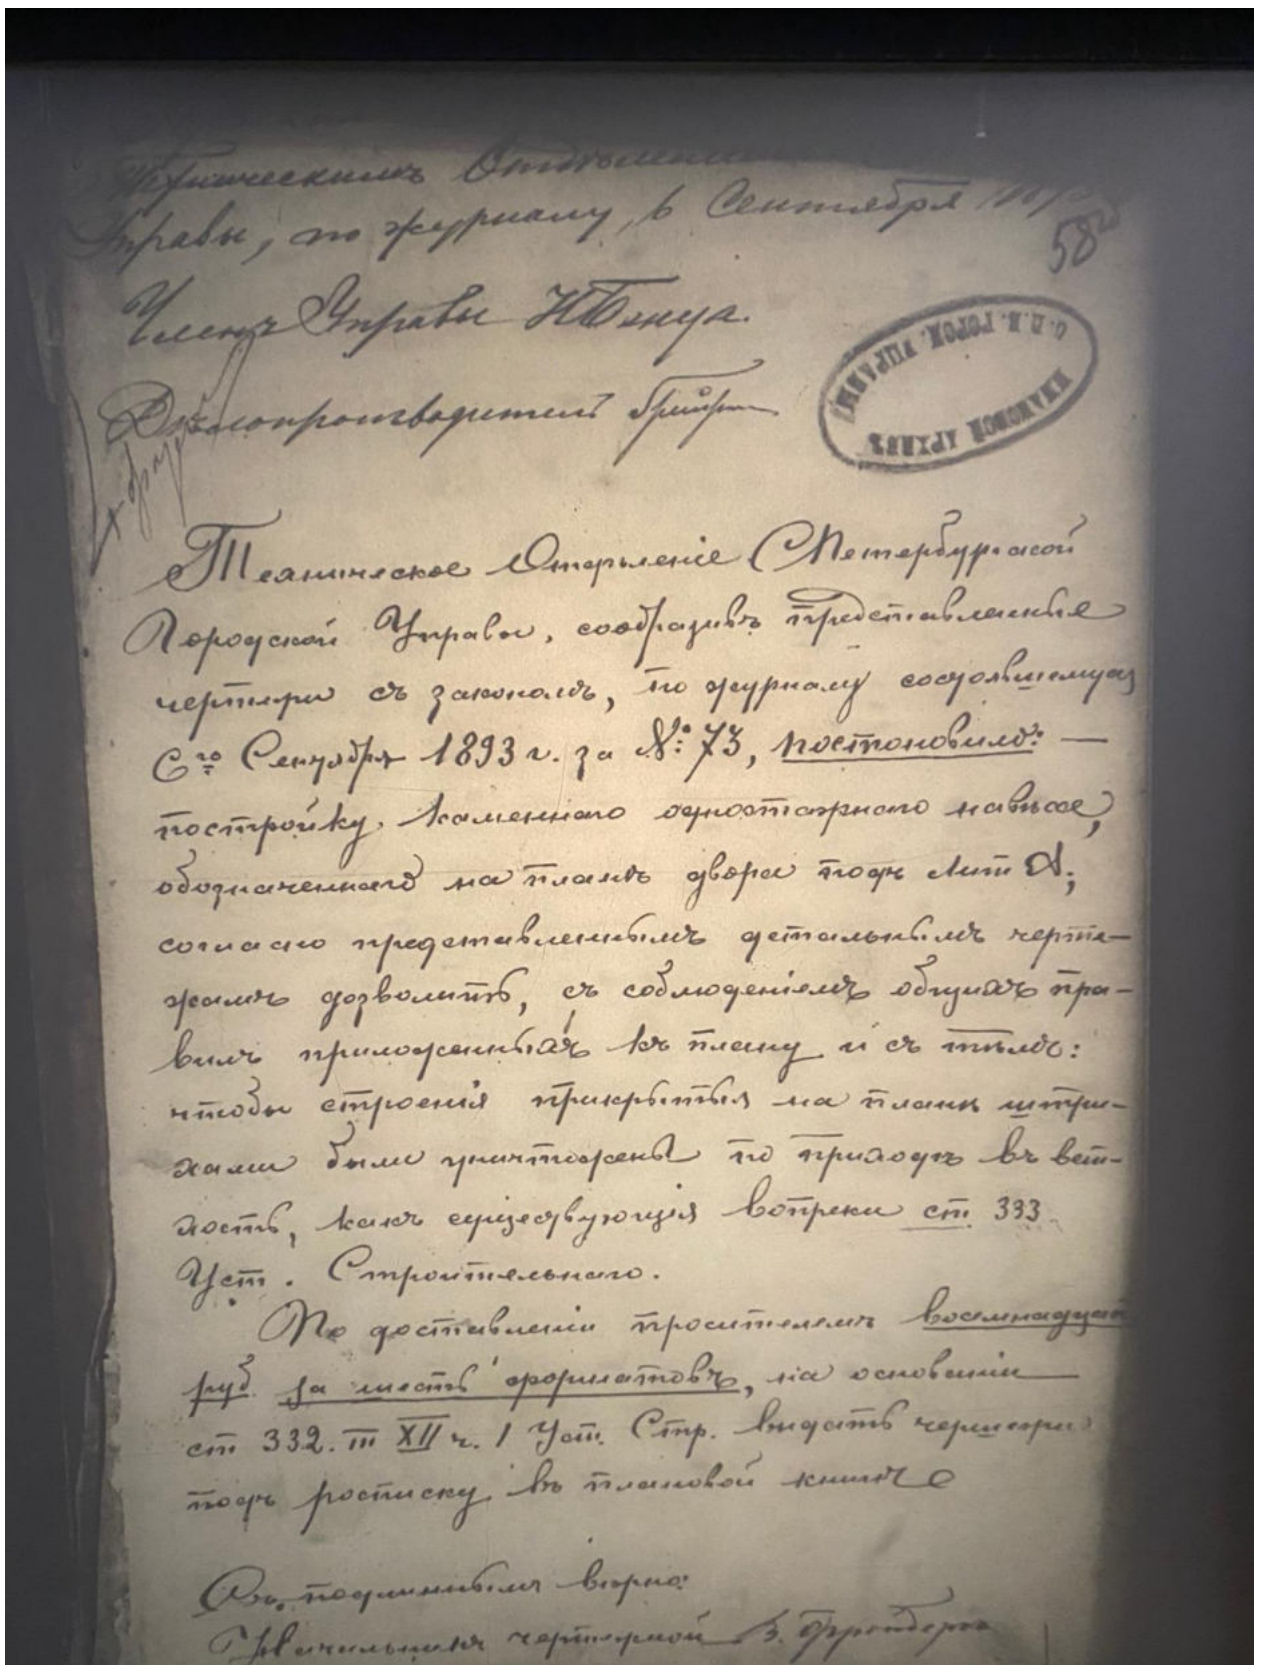 Техническимъ Отдѣленіемъ
Управы, по журналу, 6 Сентября
58
Членъ Управы Н Бенуа.
Дѣлопроизводитель
С.П.Б. ГОРОД. УПРАВЫ
ПЛАНОВОЙ АРХИВЪ
Техническое Отдѣленіе СПетербургской
Городской Управы, сообразивъ представленные
чертежи съ закономъ, по журналу состоявшемуся
6го Сентября 1893 г. за №: 73, постановило: —
постройку каменнаго одноэтажнаго навѣса,
обозначеннаго на планѣ двора подъ Лит А;
согласно представленнымъ детальнымъ черте-
жамъ дозволить, съ соблюденіемъ общихъ пра-
вилъ приложенныхъ къ плану и съ тѣмъ:
чтобы строенія прикрытыя на планѣ штри-
хами были уничтожены по приходѣ въ вет-
хость, какъ существующія вопреки ст. 333
Уст. Строительнаго.
По доставленіи просителемъ восемнадцати
руб за шесть форматовъ, на основаніи
ст 332. т XII ч. 1 Уст. Стр. выдать чертежи
подъ росписку въ плановой книгѣ
Съ подлиннымъ вѣрно:
Начальникъ чертежной В.